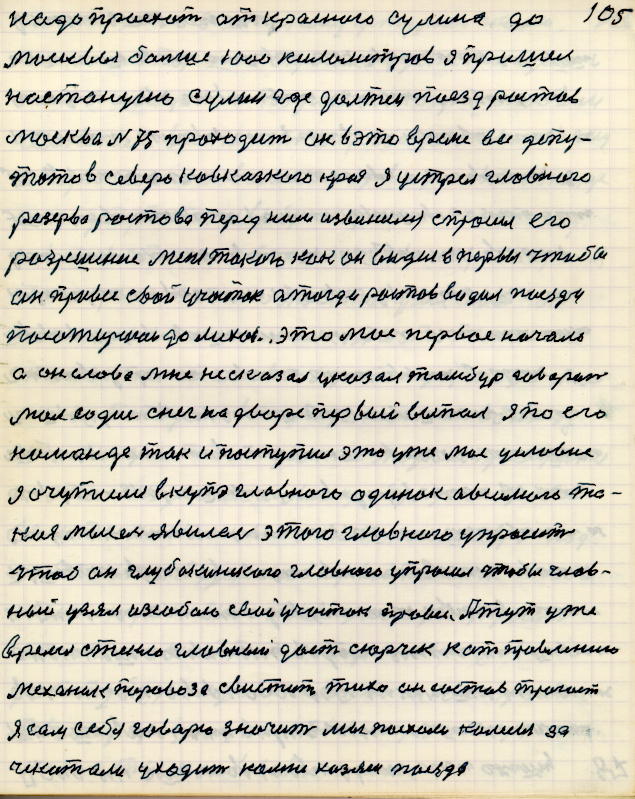 надо проехат от красного сулина до 105
москвы болше 1000 километров я пришел
настанцию сулин где должен поезд ростов
москва N 75 проходит он в это время вез депу-
татов северо кавказкого края я устрел главного
резерва ростова перед ним извинился спросил его
разрешение меня такого как он видив первы чтобы
он провез свой участок а тогда ростов водил поезда
пасажирския до лихой. это мое первое начало
а он слова мне несказал указал тамбур говарит
мол садис снег на дворе первый выпал я по его
команде так и поступил это уже мое условие
я очутился вкупэ главного одинок а вголове та-
кая мысля явилася этого главного упросит
чтоб он глубокинского главного упросил чтобы глав-
ный узял изсобою свой участок провез. А тут уже
время стекло главный даст сюрчек к отправлению
механик паровоза свистит тихо он состав трогает
я сам себе говарю значит мы поехали колеса за
чикатали уходит наши хозяин поезда